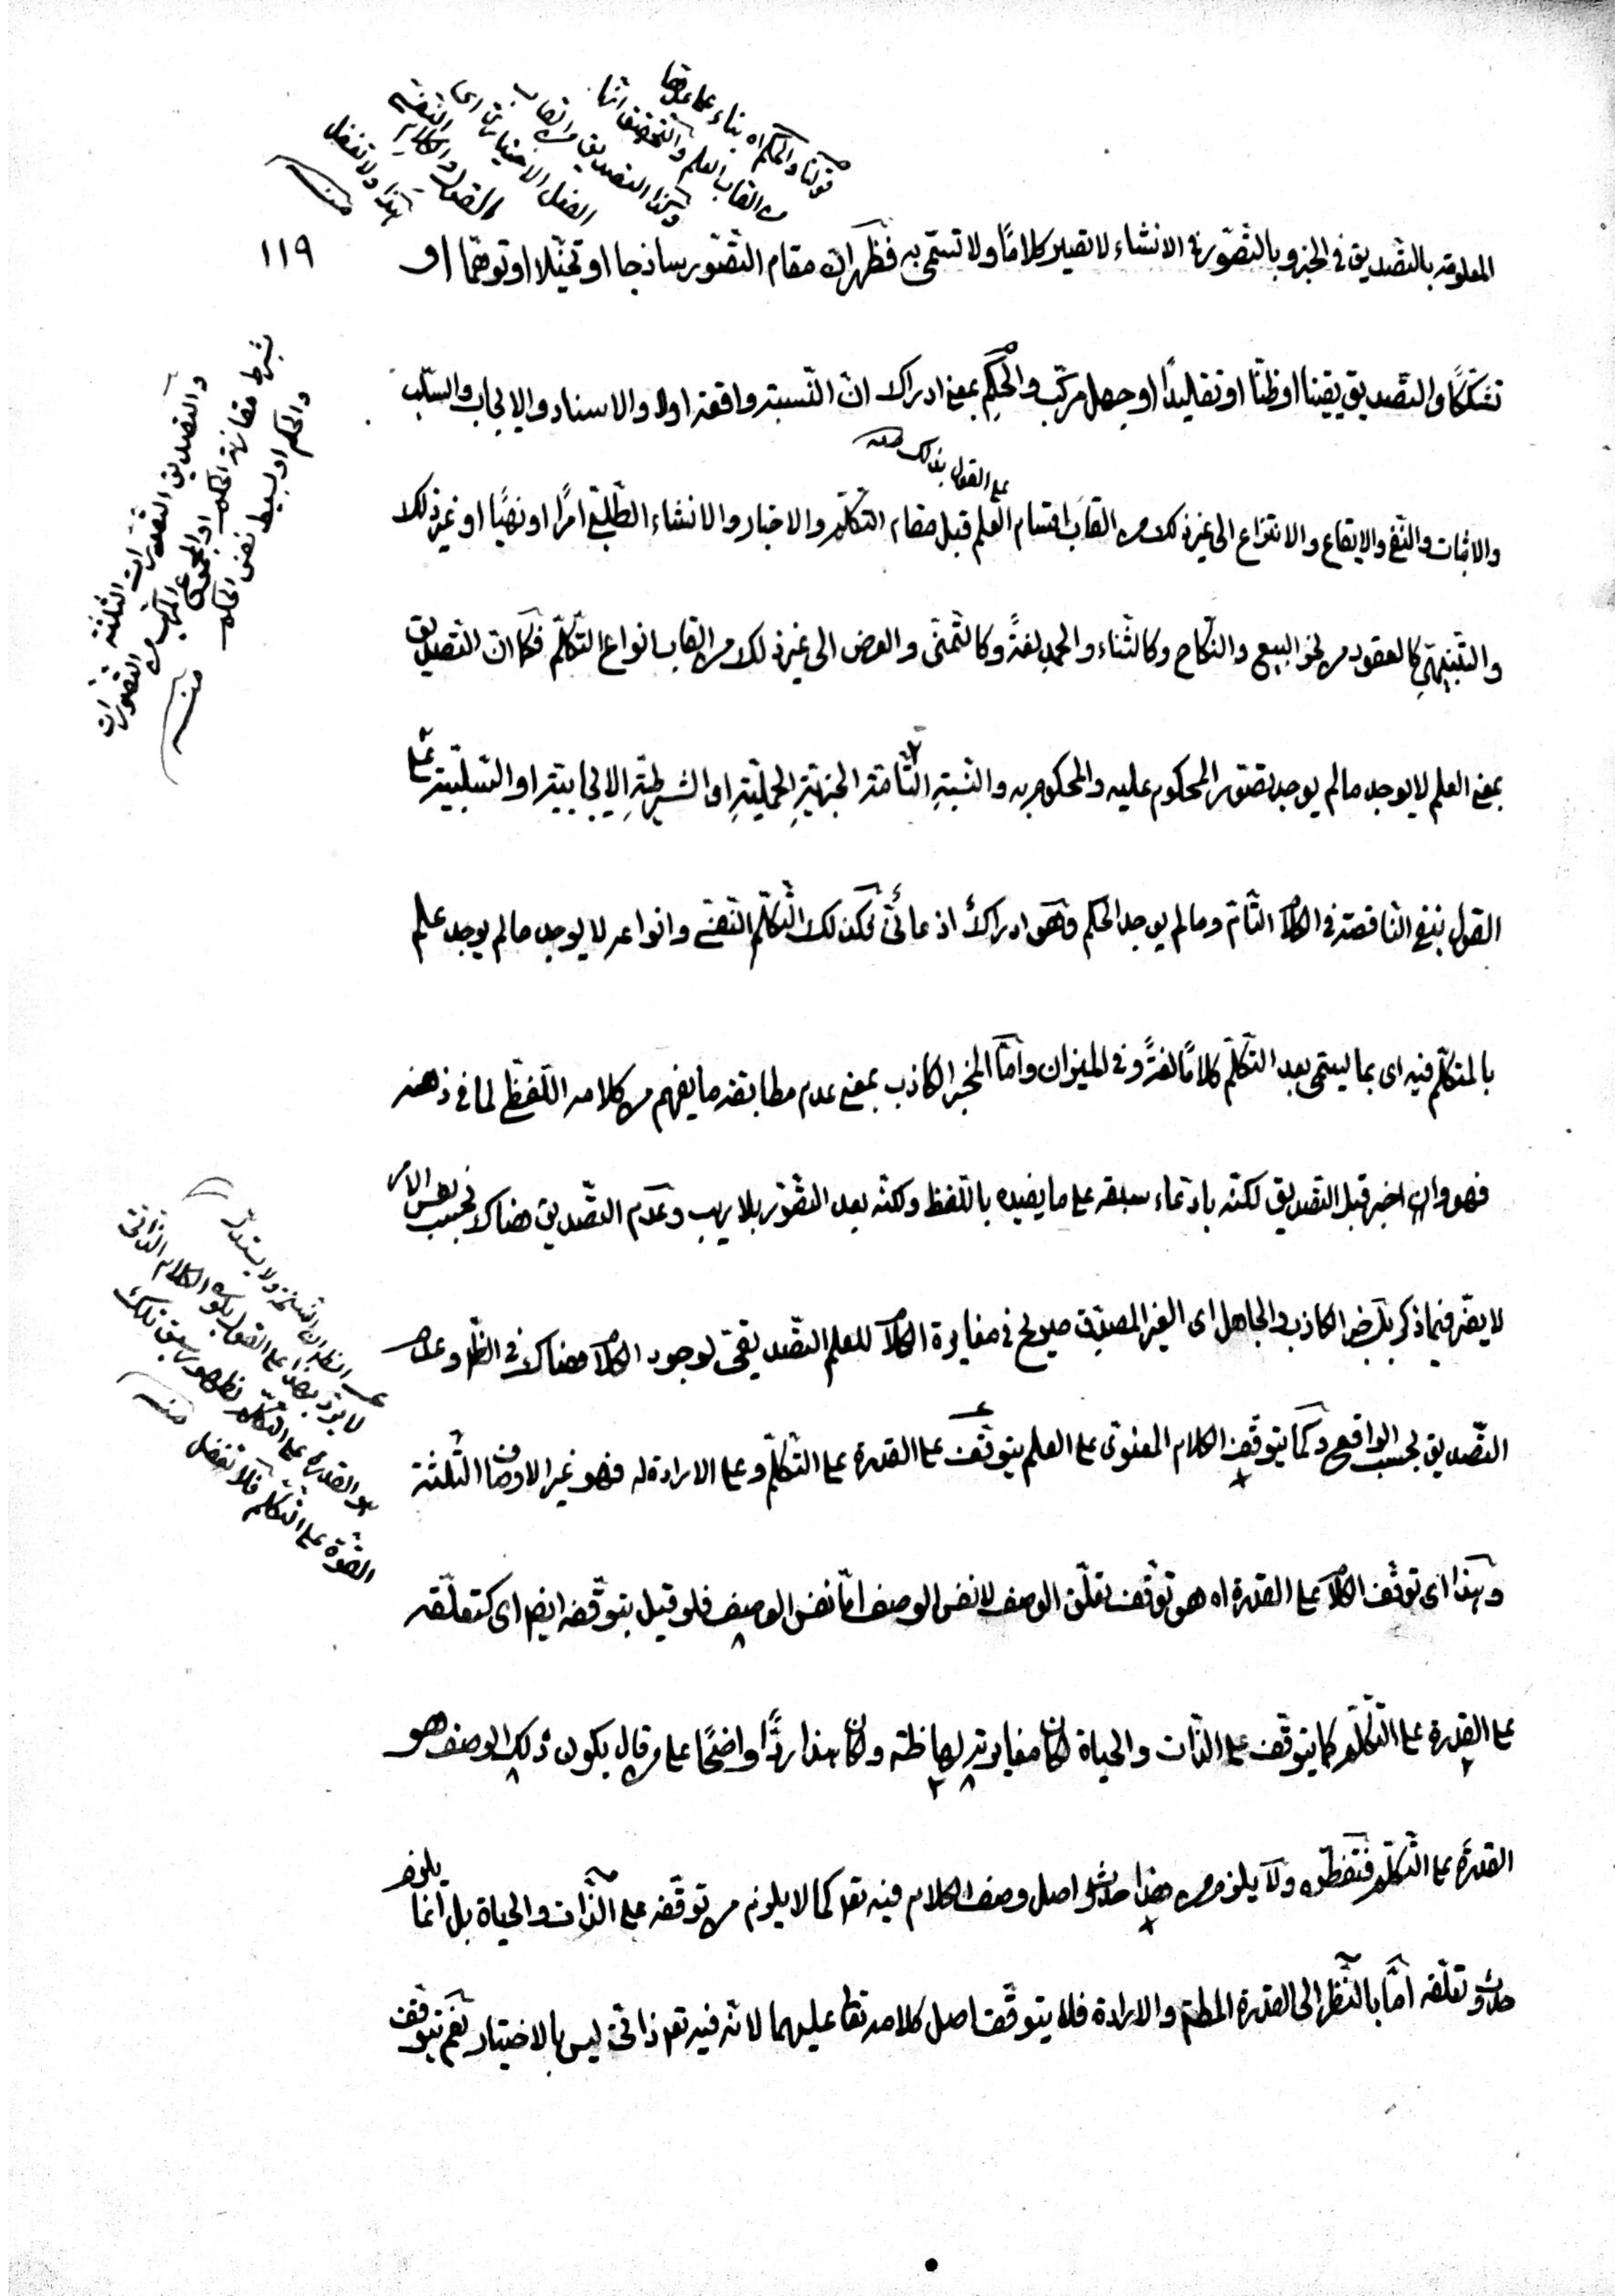 قولنا والحكم اه بناء على عدهما
من القاب العلم والتحقيق انها
وكذا التصديق من القاب
الفعل الاختياري اى
القول والكلام النفسي
هذا ولا تغفل
منه
١١٩
المعلومة بالتصديق في الخبر وبالتصوّر في الانشاء لا تصير كلامًا ولا تسمّى به فظهر انّ مقام التصّور ساذجا او تخيّلا او توهّما او
تشكّكًا والتصديق يقينا او ظنّا او تقليدًا او جهل مركّب والحكم بمعنى ادراك انّ النّسبة واقعة اولا والاسناد والايجاب والسّلب
على القول بذلك منه
والاثبات والنّفى والايقاع والانتزاع الى غير ذلك من القاب اقسام العلم قبل مقام التكلّم والاخبار والانشاء الطّلبى امرًا او نهيًا او غير ذلك
والتّنبيهى كالعقود من نحو البيع والنّكاح وكالثّناء والحمد لغةً وكالتّمنّى والعرض الى غير ذلك من القاب انواع التّكلّم فكما انّ التّصديق
بمعنى العلم لا يوجد ما لم يوجد تصّور المحكوم عليه والمحكوم به والنّسبةِ التّامّة الخبريّةِ الحمليّةِ او الشّرطيّةِ الايجابيّة او السّلبيّة على
القول بنفى الناقصة في الكلام التّامّ وما لم يوجد الحكم وهو ادراكٌ اذعانىّ فكذلك التّكلّم النفسى وانواعه لا يوجد ما لم يوجد علم
بالمتكلّم فيه اى بما يسمّى بعد التّكلّم كلامًا لغةً وفى الميزان وامّا المخبر الكاذب بمعنى عدم مطابقة ما يفهم من كلامه اللّفظىّ لما في ذهنه
فهو وان اخبر قبل التصديق لكنّه بادّعاء سبقه على ما يفيده باللّفظ ولكنّه بعد التصّور بلا ريب وعدم التّصديق هناك بحسب نفس الامر
لا يضّر فيما ذكر بل خبر الكاذب والجاهل اى الغير المصدّق صريح فى مغايرة الكلام للعلم التّصديقىّ لوجود الكلام هناك فى الظّاهر وعدم
التّصديق بحسب الواقع وكما يتوقّف الكلام المعنوىّ على العلم يتوقّف على القدرة على التكلّم وعلى الارادة له فهو غير الاوصاف الثّلثة
وهذا اى توقّف الكلام على القدرة اه هو توقّف تعلّق الوصف لا نفس الوصف امّا نفس الوصف فلو قيل بتوقّفه ايضا اى كتعلّقه
على القدرة على التّكلّم كما يتوقّف على الذّات والحياة لكان مغايرته لها ظاهرة ولكان هذا ردًّا واضحًا على من قال بكون ذلك الوصف هو
القدرة على التّكلّم فتفطّن ولا يلزم من هذا حدوث اصل وصف الكلام فيه تعا كما لا يلزم من توقّفه على الذّات والحياة بل انّما يلزم
حدوث تعلّقه امّا بالنّظر الى القدرة المطلقة والارادة فلا يتوقّف اصل كلامه تعا عليهما لانّه فيه تعا ذاتىّ ليس بالاختيار نعم يتوقّف
والتصديق التصوّرات الثلثة
بشرط مقارنة الحكم او المجموع المركّب من التصوّرات
والحكم او بسيط نفس الحكم
منه
لا يرد بهذا على القول بكون الكلام الذّاتى
هو القدرة على التّكلّم لظهور سبق تلك
القوّة على التّكلّم فلا تغفل منه